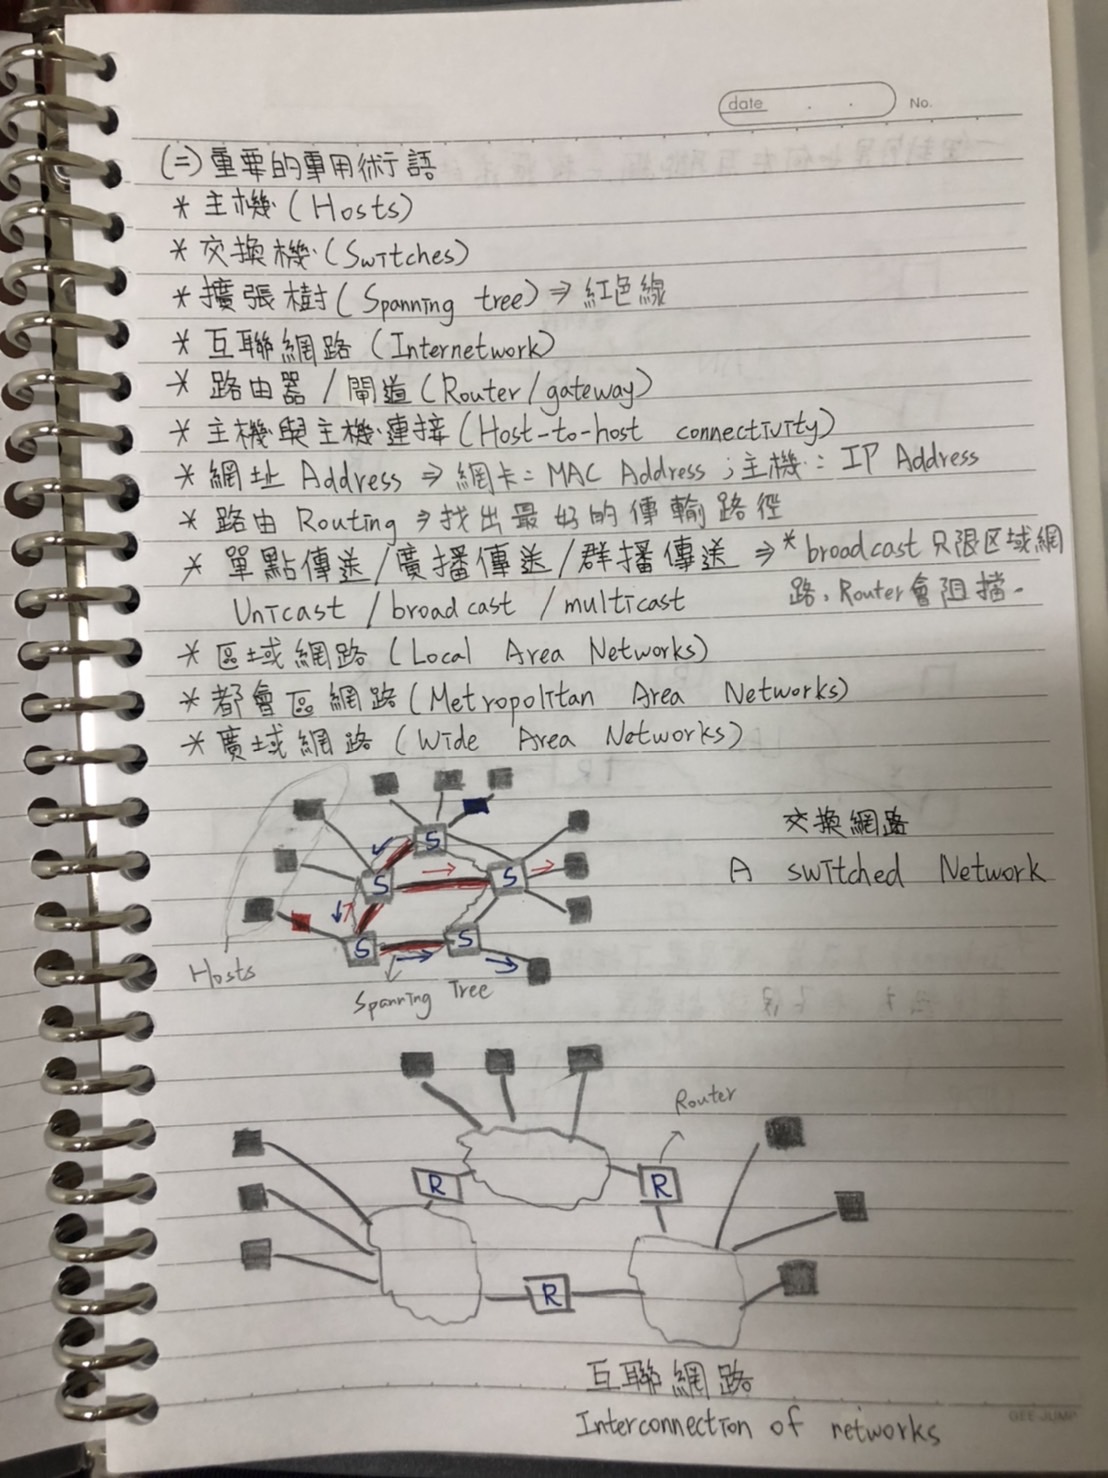 date . . No.
(二)重要的專用術語
* 主機(Hosts)
* 交換機(Switches)
* 擴張樹(Spanning tree)⇒紅色線
* 互聯網路(Internetwork)
* 路由器/閘道(Router/gateway)
* 主機與主機連接(Host-to-host connectivity)
* 網址 Address ⇒網卡:MAC Address;主機:IP Address
* 路由 Routing ⇒找出最好的傳輸路徑
* 單點傳送/廣播傳送/群播傳送 ⇒*broadcast只限区域網
Unicast/broadcast/multicast 路,Router會阻擋.
* 區域網路(Local Area Networks)
* 都會區網路(Metropolitan Area Networks)
* 廣域網路(Wide Area Networks)
交換網路
A switched Network
S
S
S
S
S
Hosts
Spanning Tree
Router
R
R
R
互聯網路
Interconnection of networks
GEE JUMP